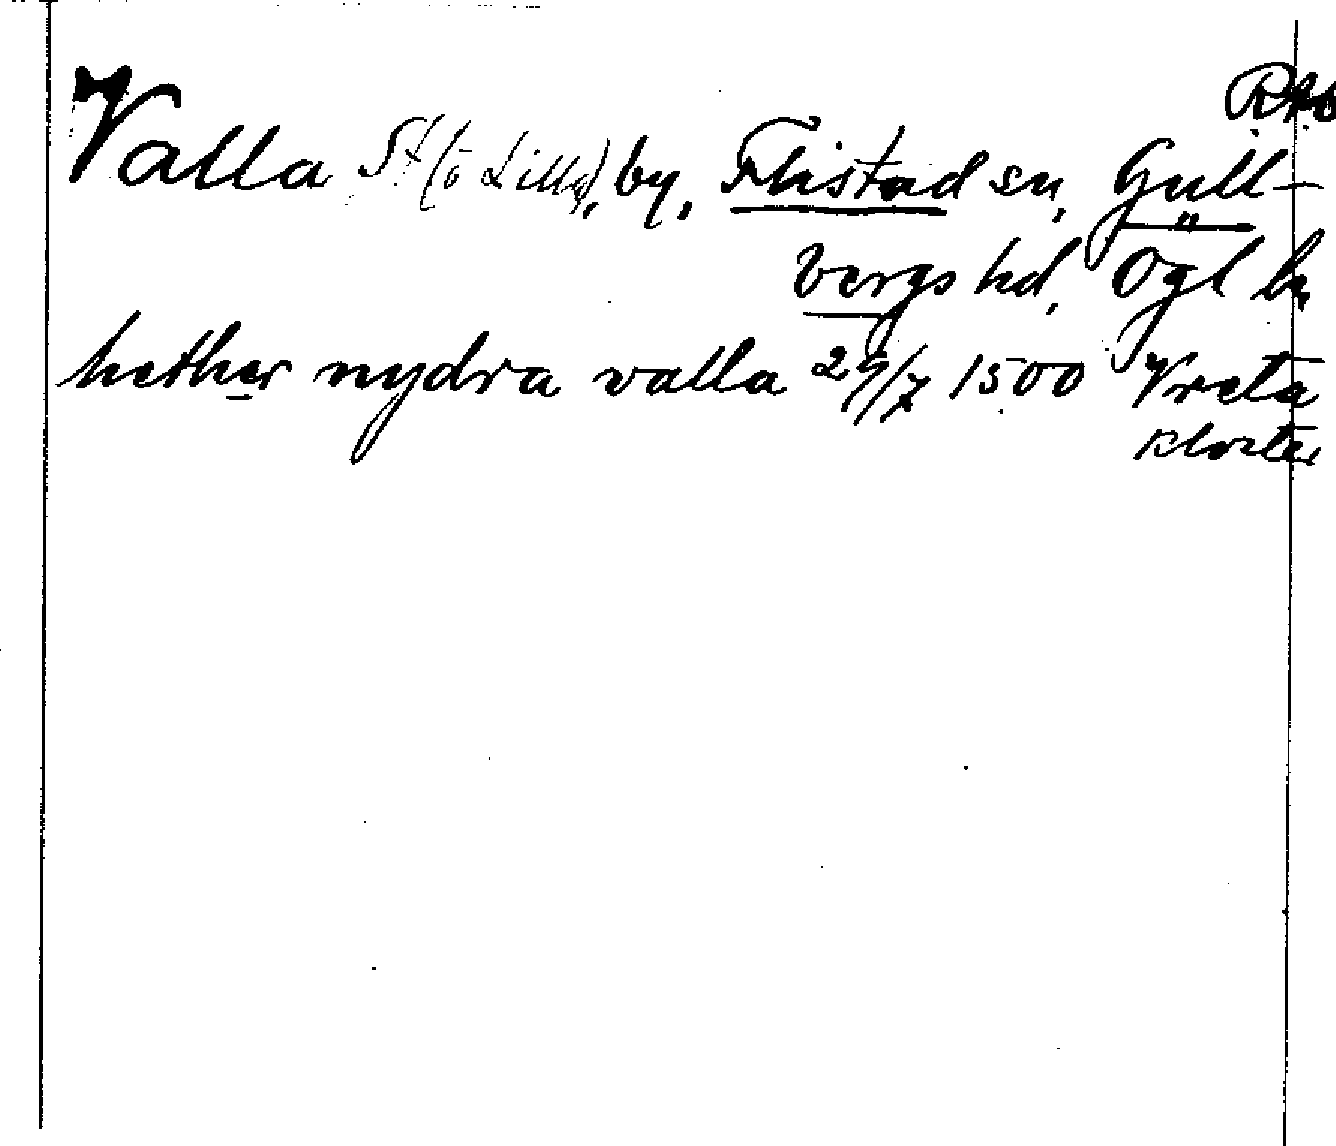 RAO
Valla St (o Lilla), by, Flistad sn, Gull-
bergs hd, Ögl ln
hether nydra valla 29/7 1500 Vreta
kloster